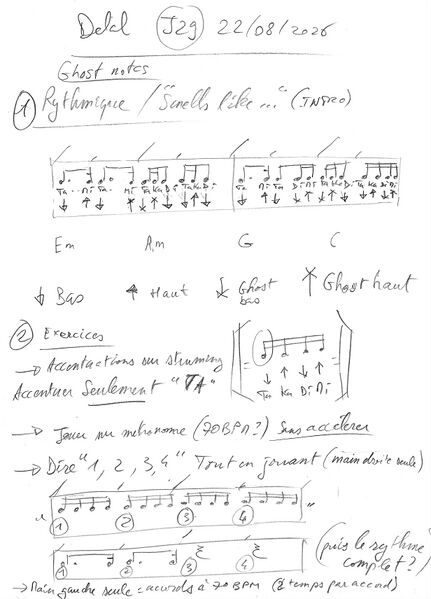 J29 22/08/2026
Ghost notes
① Rythmique / "Smells like..." (INTRO)
Ta . . Mi Ta . Mi Ta Ka Di Ta Ka Di Ta Mi Ta Di Mi Ta Ka Di Ta Ka Di Mi
Em Am G C
Bas Haut Ghost bas Ghost haut
② Exercices
→ Accentuations sur strumming
Accentuer Seulement "TA"
Ta Ka Di Mi
→ Jouer sur métronome (70BPM?) Sans accélérer
→ Dire "1, 2, 3, 4" Tout en jouant (main droite seule)
" ① ② ③ ④ "
① ② ③ ④ (puis le rythme complet?)
→ Main gauche seule = accords à 70 BPM (2 temps par accord)